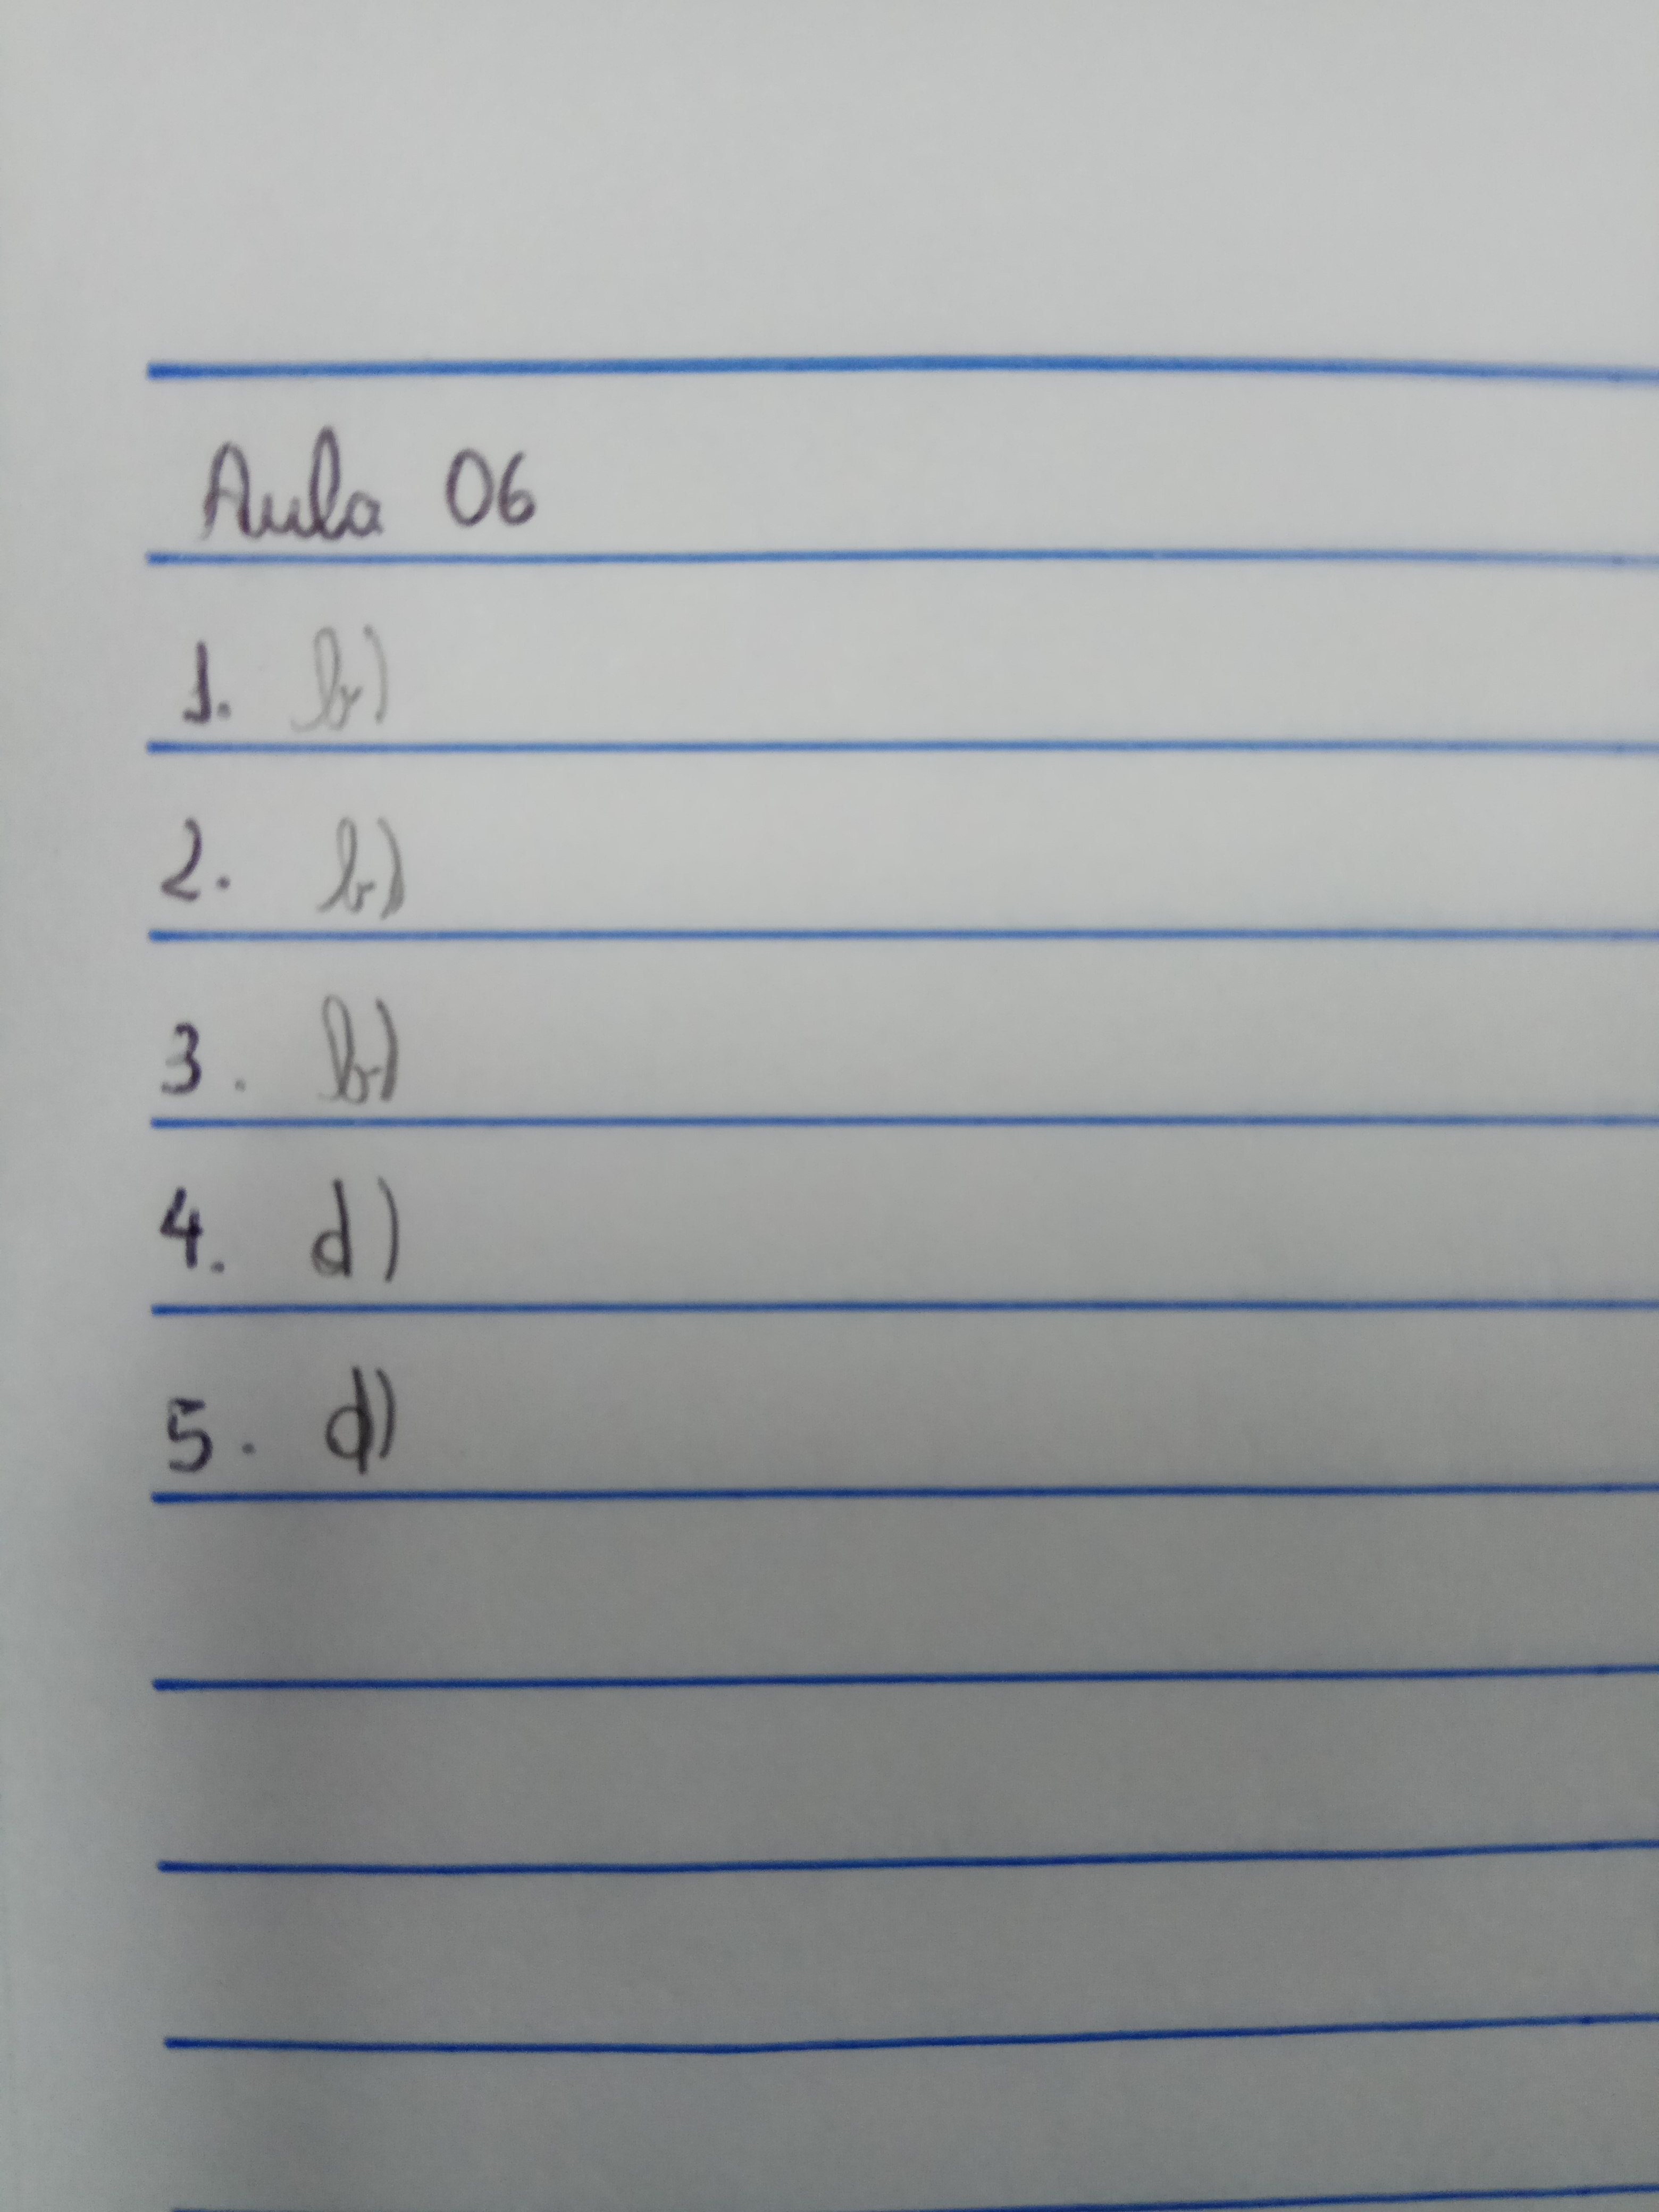 Aula 06
1. b)
2. b)
3. b)
4. d)
5. d)